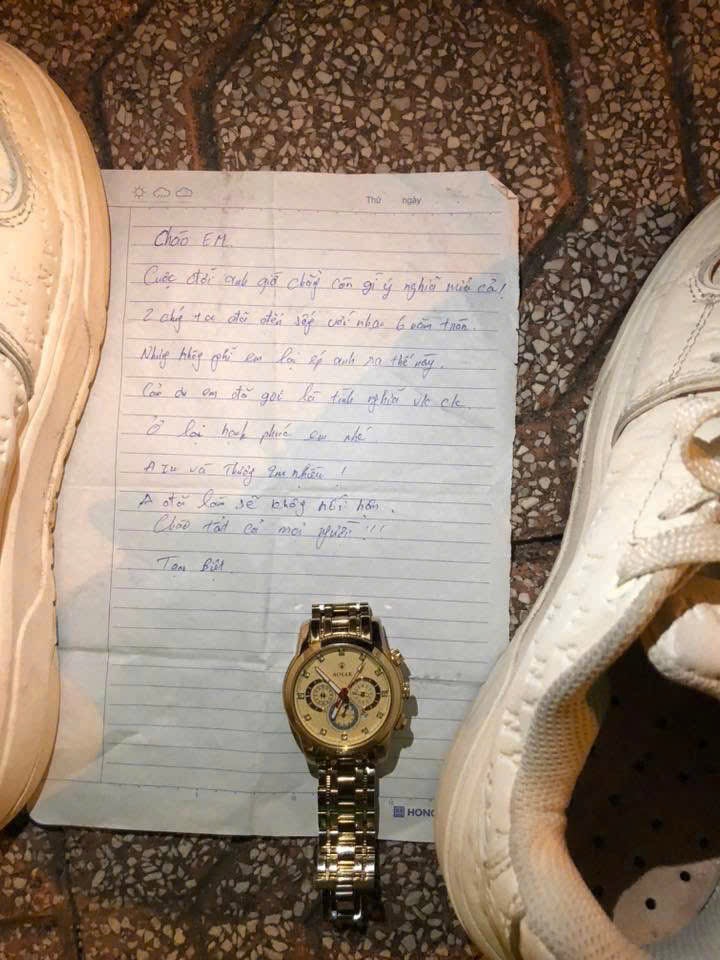 Thứ ngày
Chào EM.
Cuộc đời anh giờ chẳng còn gì ý nghĩa nữa cả!
2 chúng ta đã đến sống với nhau 6 năm tròn.
Nhưng không phải em lại ép anh ra thế này.
Cảm ơn em đã gọi là tình nghĩa vk ck.
Ở lại hạnh phúc em nhé
A và Thương em nhiều !
A đã làm sẽ không hối hận.
Chào tất cả mọi người !!!
Tạm Biệt.
HONG